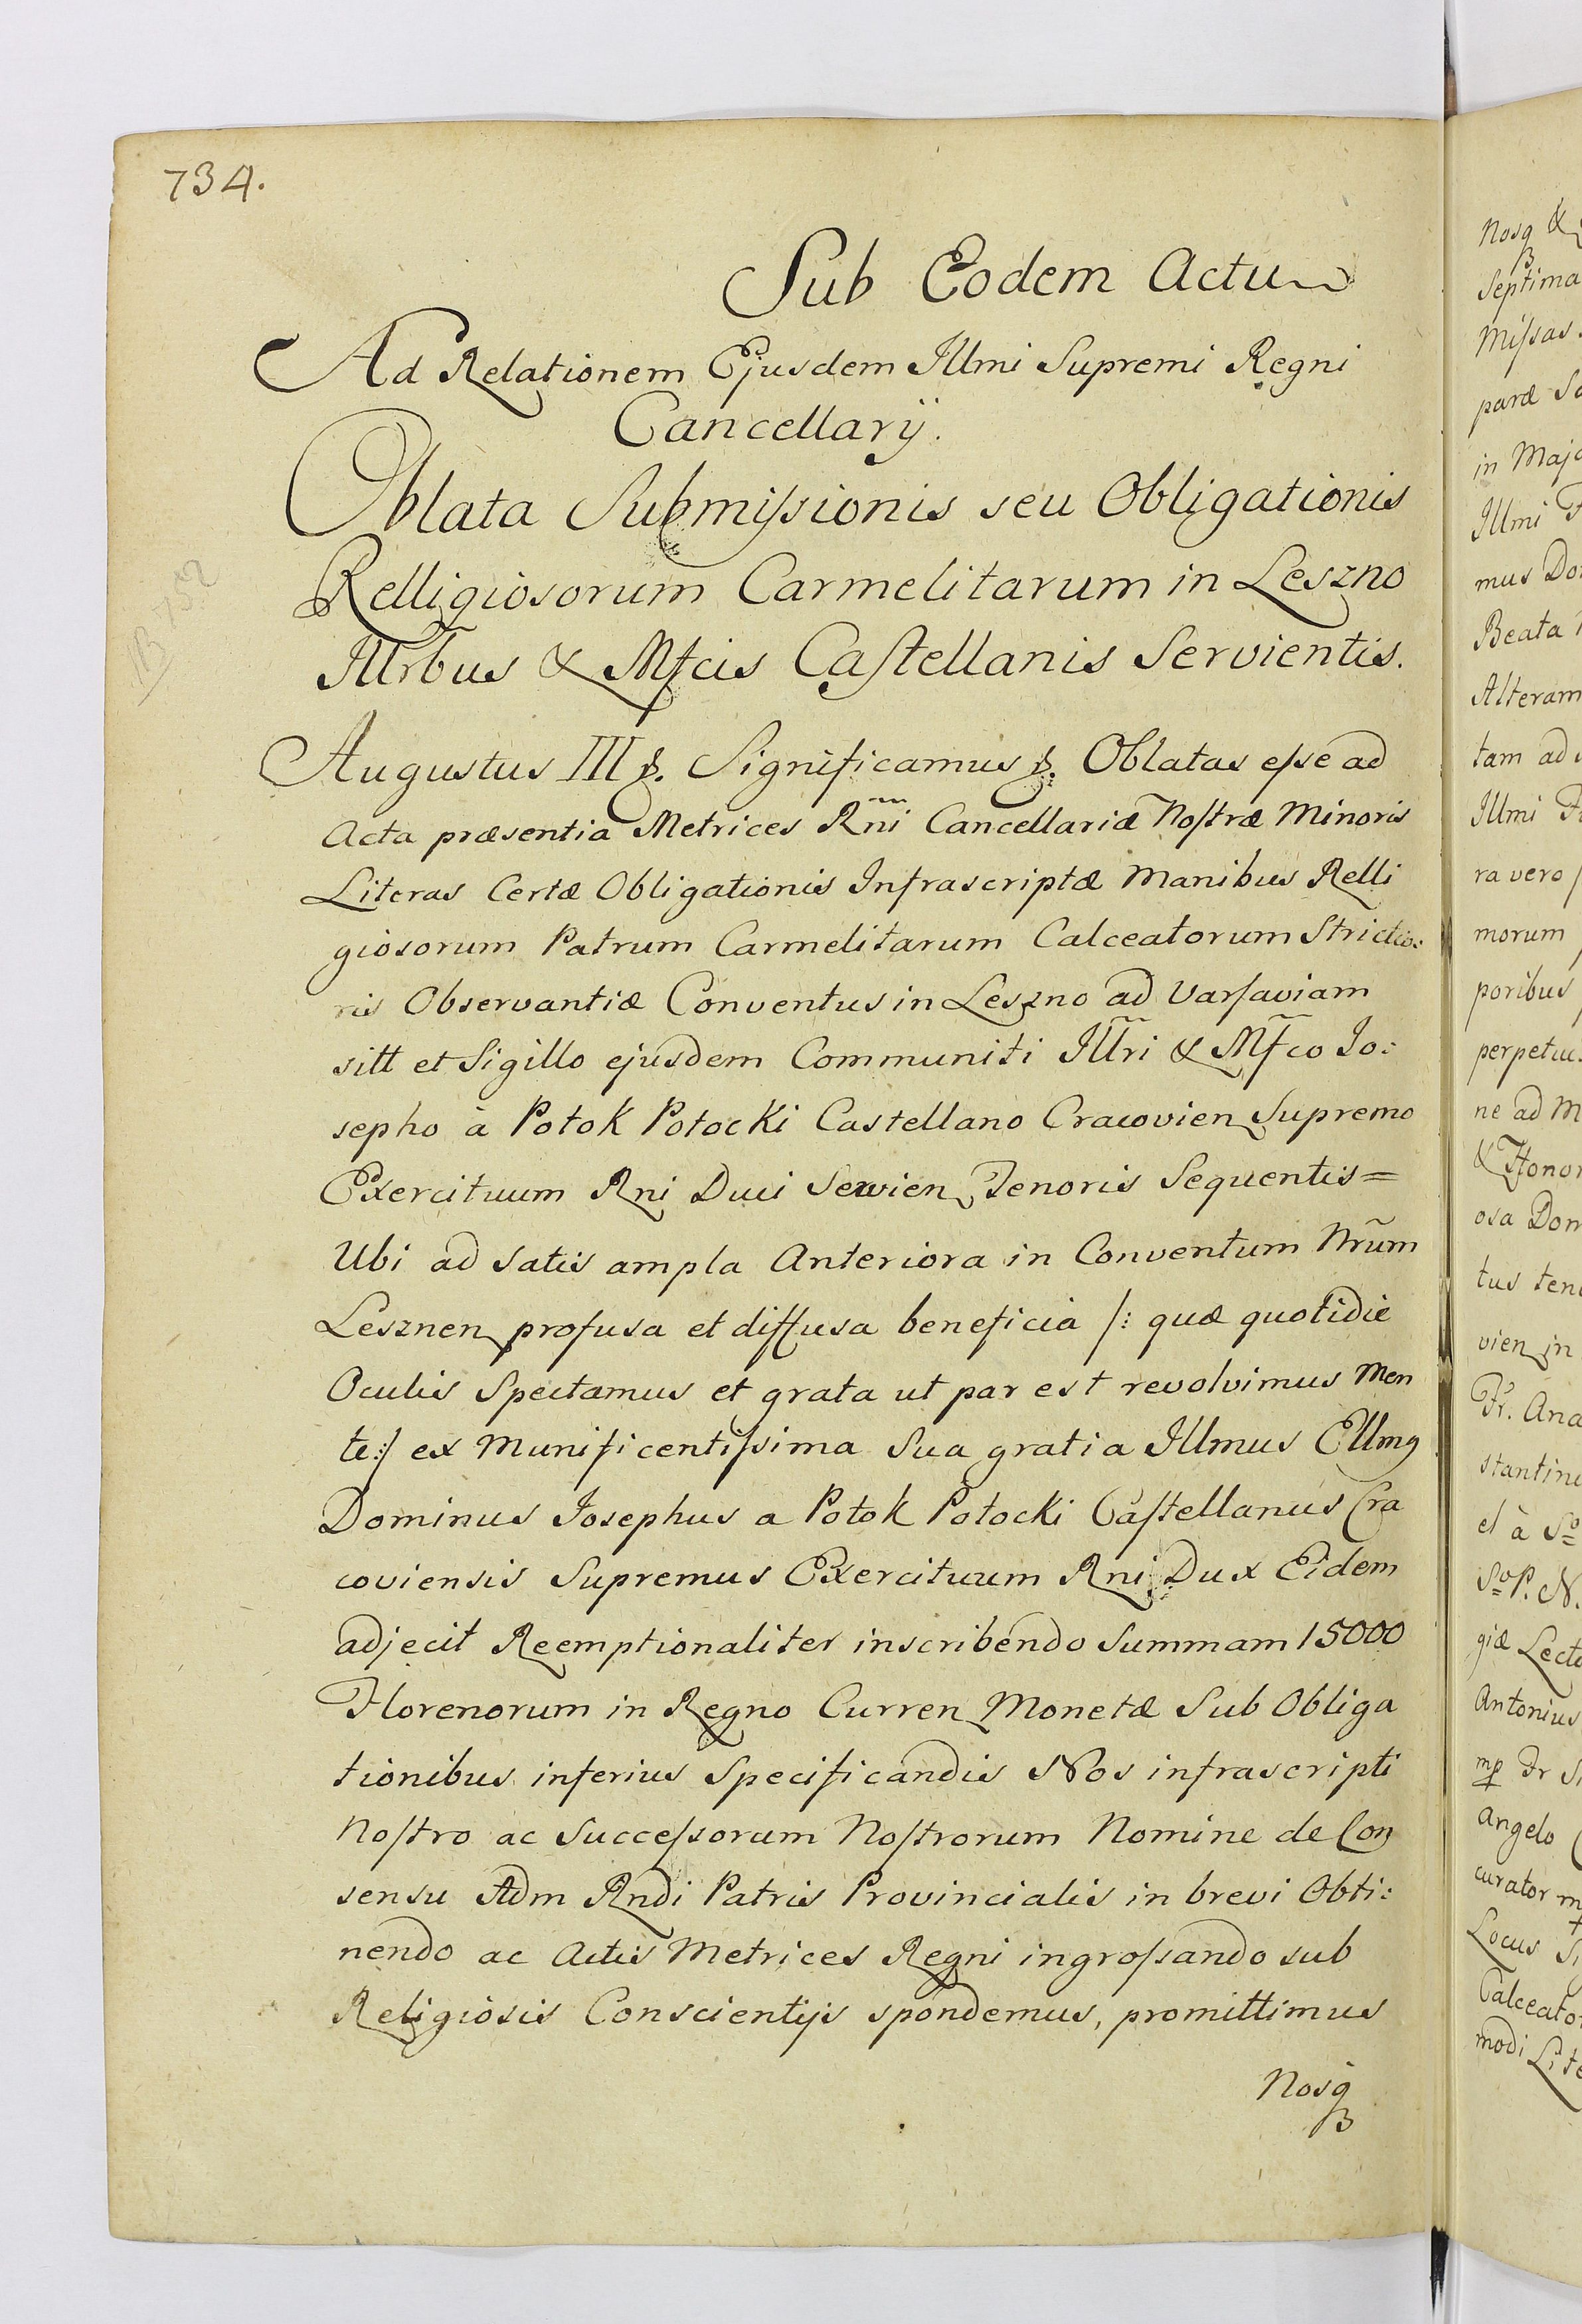 734.
Sub Eodem Actu
Ad Relationem Ejusdem Illmi Supremi Regni
Cancellarÿ.
Oblata Submiſsionis seu Obligationis
Relligiosorum Carmelitarum in Leszno
Illrbus & Mfcis Caſtellanis Servientis.
Augustus III &. Significamus &. Oblatas eſse ad
Acta præsentia Metrices Rni Cancellariæ Noſtræ Minoris
Literas Certæ Obligationis Infrascriptæ Manibus Relli
giosorum Patrum Carmelitarum Calceatorum Strictio:
ris Observantiæ Conventus in Leszno ad Varſaviam
sitt et Sigillo ejusdem Communiti Illri & Mfco Jo:
sepho à Potok Potocki Castellano Cracovien Supremo
Exercituum Rni Duci Servien Tenoris Sequentis =
Ubi ad satis ampla Anteriora in Conventum Nrum
Lesznen profusa et diffusa beneficia /: quæ quotidie
Oculis Spectamus et grata ut par est revolvimus Men
te :/ ex Munificentiſsima Sua gratia Illmus Ellmq
Dominus Josephus a Potok Potocki Caſtellanus Cra
coviensis Supremus Exercituum Rni Dux Eidem
adjecit Reemptionaliter inscribendo Summam 15000
Florenorum in Regno Curren Monetæ Sub Obliga
tionibus inferius Specificandis Nos infrascripti
Noſtro ac Succeſsorum Noſtrorum Nomine de Con
sensu Adm Rndi Patris Provincialis in brevi Obti:
nendo ac Actis Metrices Regni ingroſsando sub
Religiosis Conscientijs spondemus, promittimus
Nosq
Nosq &
Septima
Miſsas
paræ
in Majo
Illmi
mus Do
Beata
Alteram
tam ad
Illmi
ra vero
morum
poribus
perpetuu
ne ad M
& Honor
osa Dom
tus ten
vien in
Fr. Ana
stantin
et à Sº
Sº P. N.
giæ Lecto
Antonius
mp Fr S
Angelo
curator m
Locus Si
Calceato
modi Lite